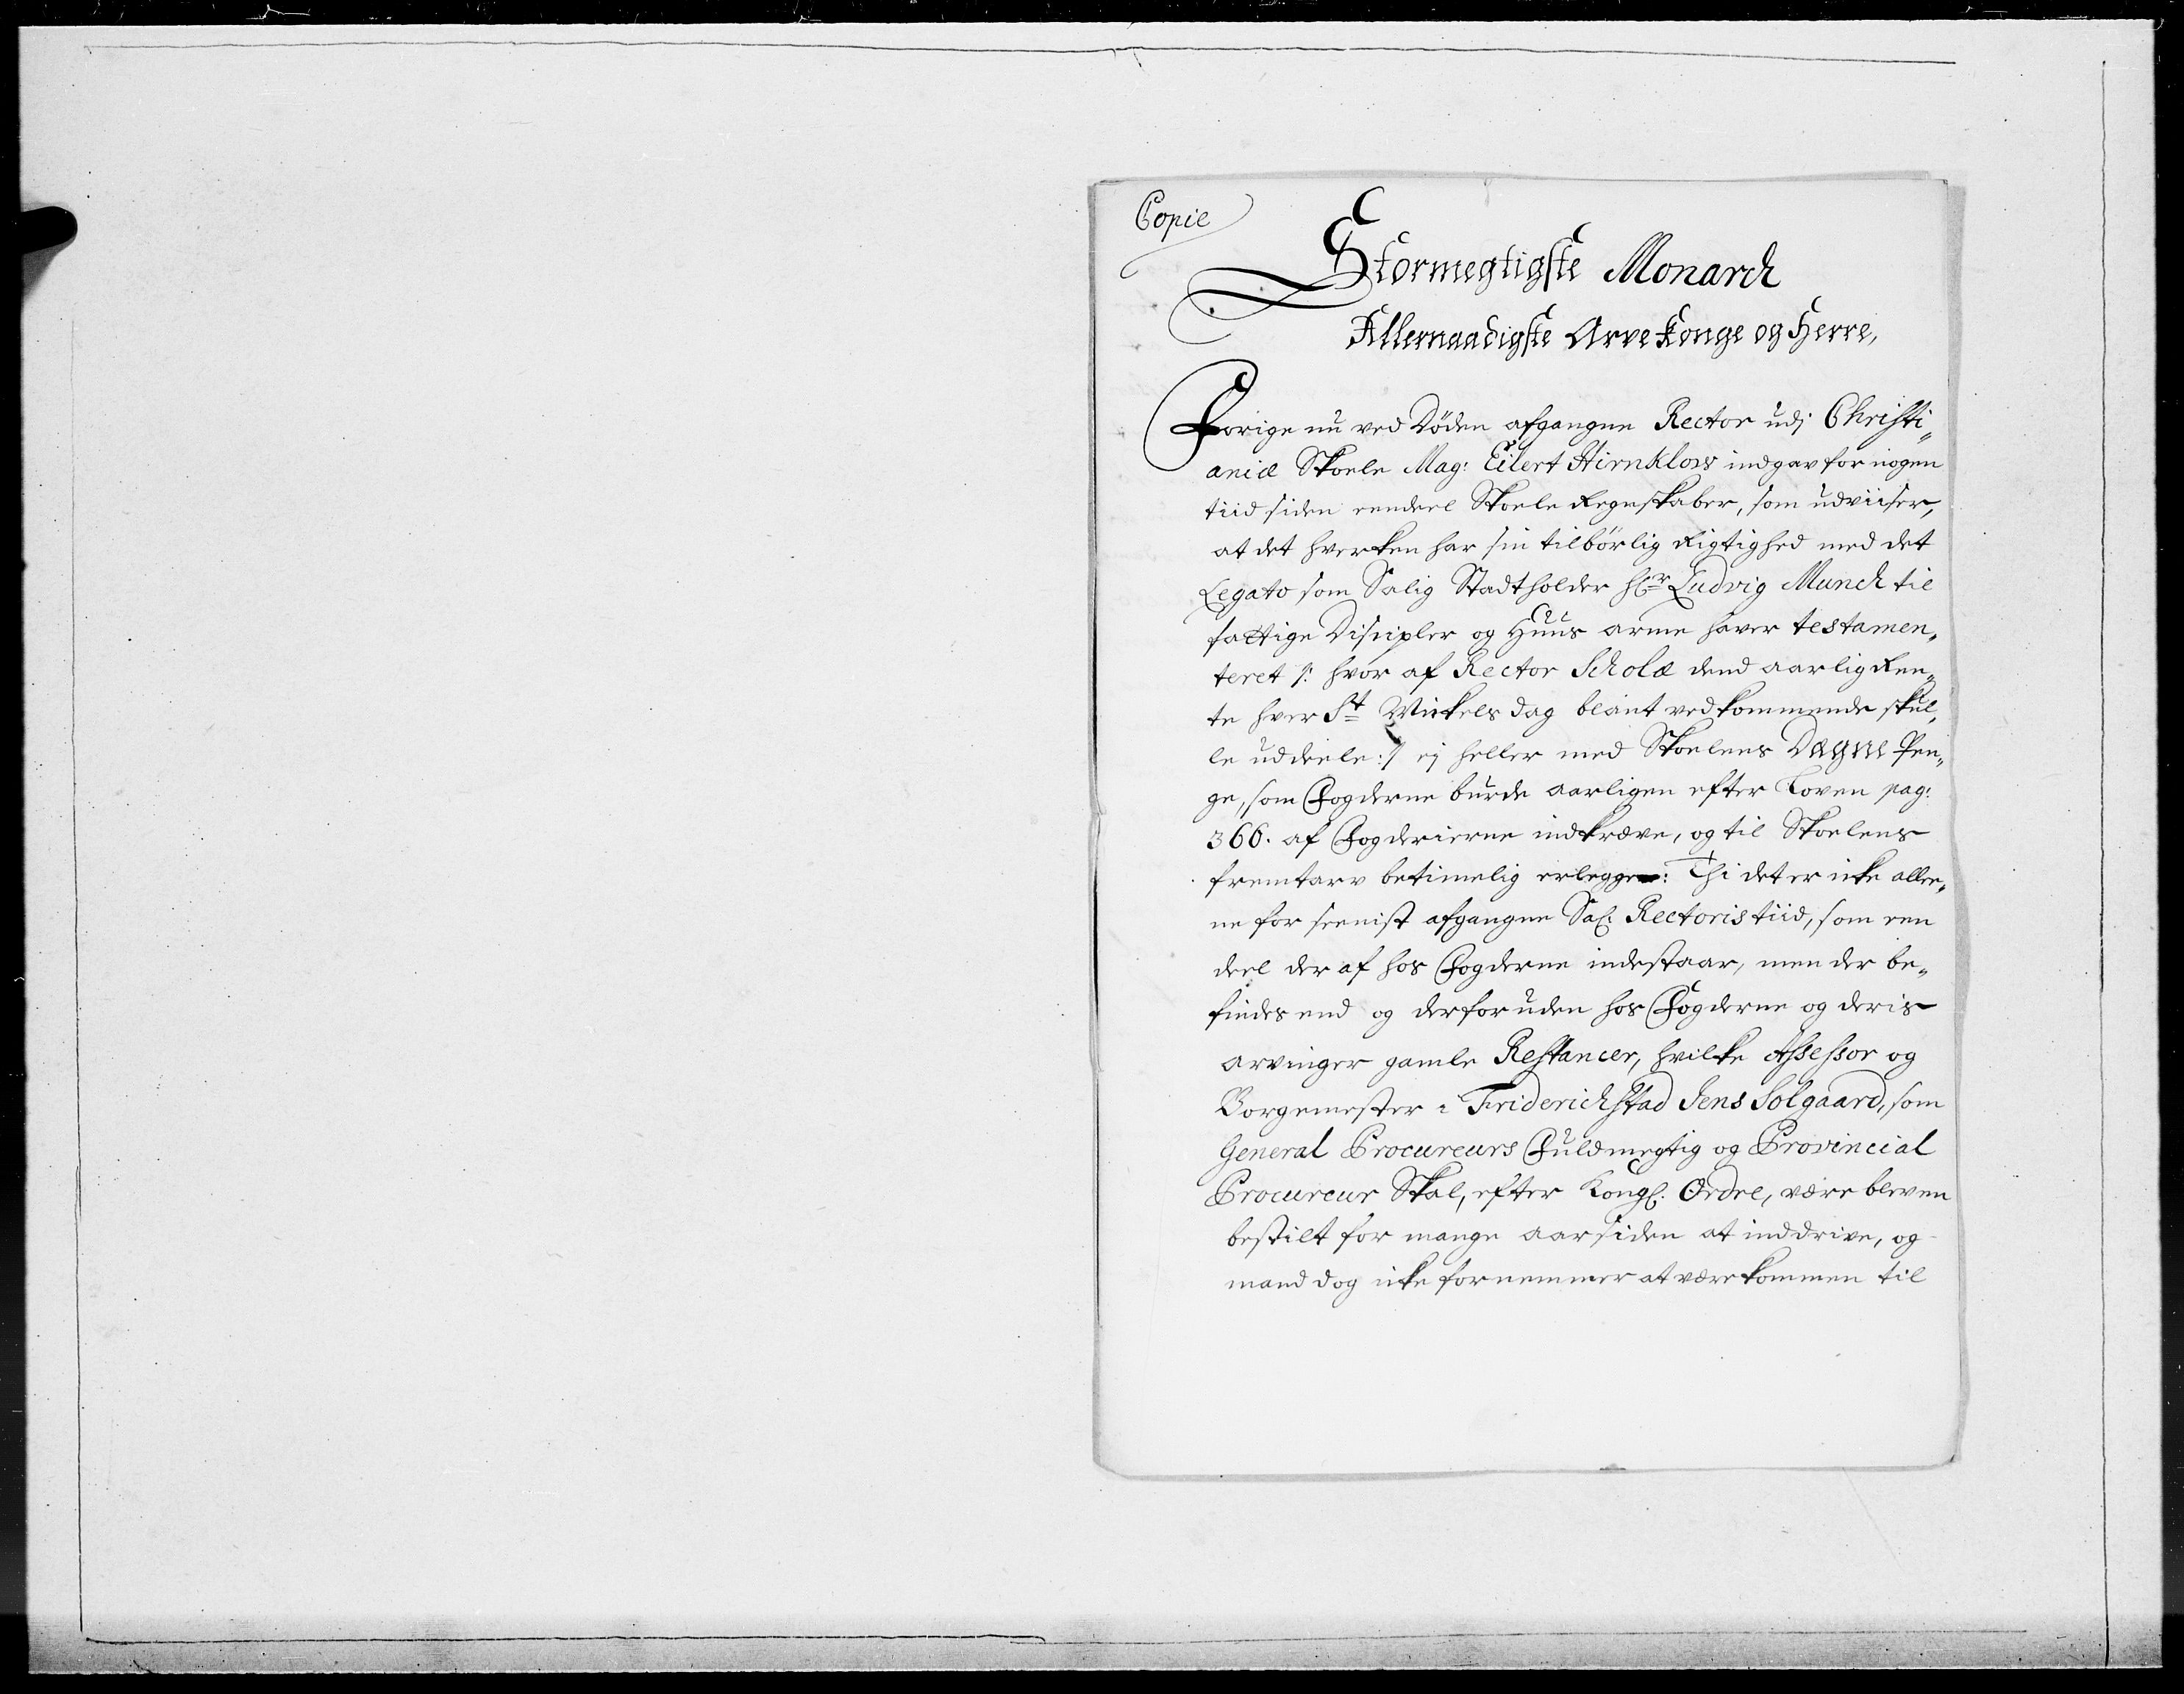 Copie
Stormegtigste Monarch
Allernaadigste Arve Konge og Herre,
Forige nu ved Døden afgangne Rector udj Christi„
aniæ Skoele Mag: Eilert Hirnklow indgav for nogen
tiid siden eendeel Skoele Regnskaber, som udviiser,
at det hverken har sin tilbørlig Rigtighed med det
Legato som Salig Stadtholder Hr Ludvig Munch til
fattige Discipler og Huus arme haver testamen„
teret /: hvor af Rector Scholæ dend aarlig Ren„
te hver St Mickels dag blant vedkommende skul„
le uddeele :/ ej heller med Skoelens Dagne Pen„
ge, som Fogderne burde aarligen efter Loven pag:
366. af Fogderierne indkræve, og til Skoelens
fremtarv betimelig erlegge: Thi det er icke alle„
ne for seenist afgangne Sal: Rectoris tiid, som een
deel der af hos Fogderne indestaar, men der be„
findes end og derforuden hos Fogderne og deris
arvinger gamle Restancer, hvilke Assessor og
Borgemester i Friderichstad Jens Solgaard, som
General Procureurs Fuldmegtig og Provincial
Procureur Skal, efter Kongl: Ordre, være bleven
bestilt for mange aar siden at inddrive, og
mand dog icke fornemmer at være kommen til